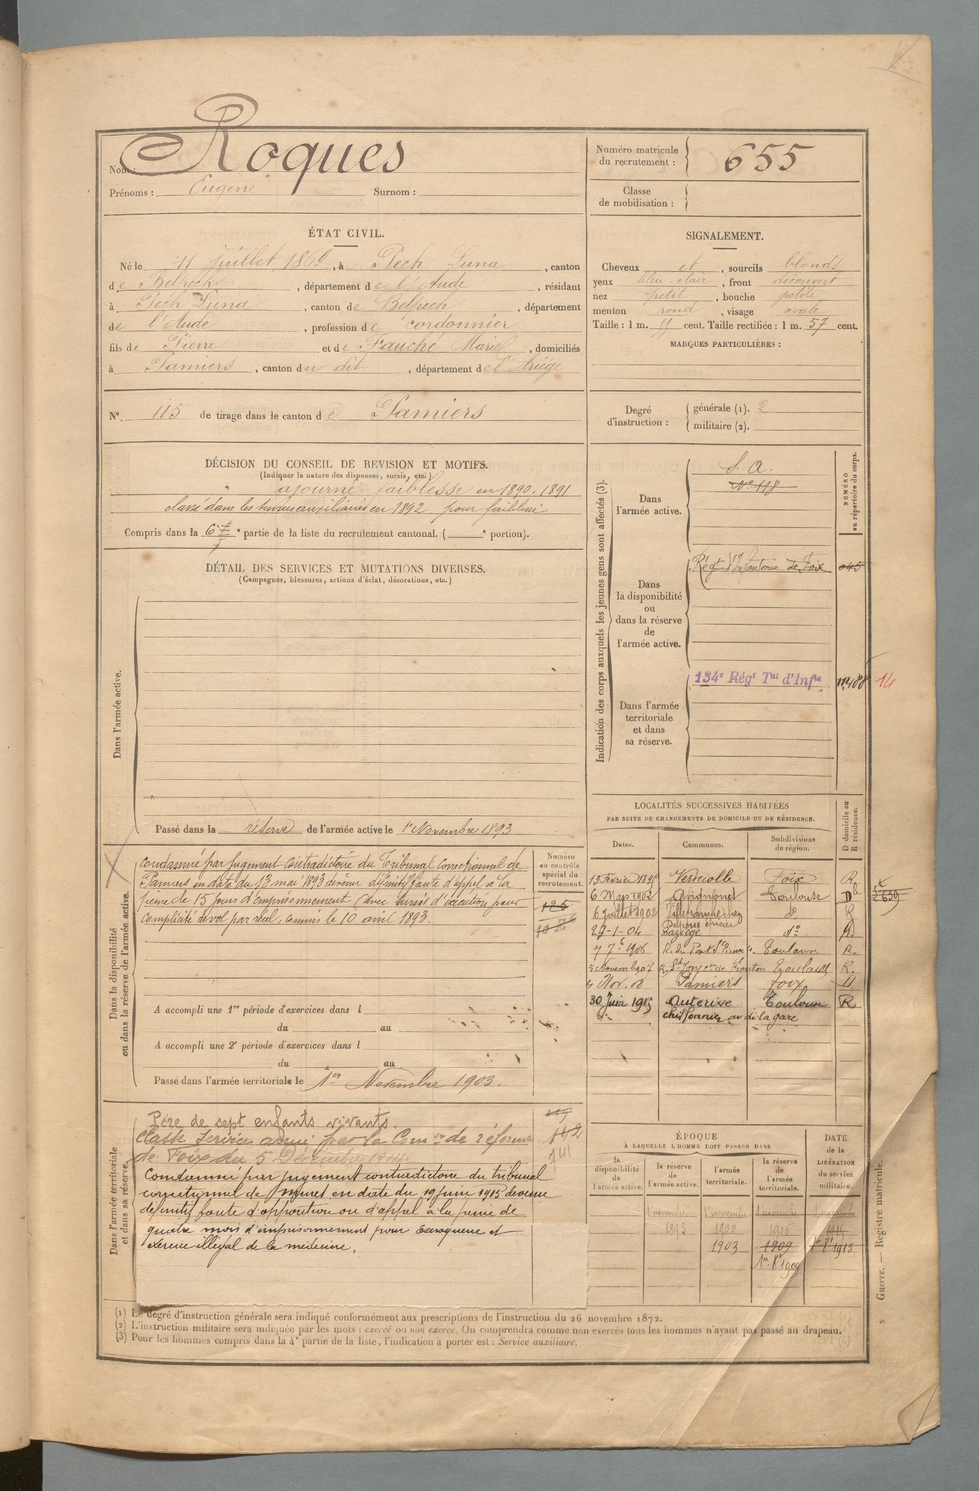 Nom : Roques
Prénoms : Eugène Surnom :
Numéro matricule du recrutement : 655
Classe de mobilisation :
ÉTAT CIVIL.
Né le 11 juillet 1869, à Pech Luna, canton
de Belpech, département de l'Aude, résidant
à Pech Luna, canton de Belpech, département
de l'Aude, profession de cordonnier
fils de Pierre et de Fauché Marie, domiciliés
à Pamiers, canton du dit, département de l'Ariège
N° 115 de tirage dans le canton de Pamiers
SIGNALEMENT.
Cheveux et, sourcils blonds
yeux bleu clair, front découvert
nez petit, bouche petite
menton rond, visage ovale
Taille : 1 m. 55 cent. Taille rectifiée : 1 m. 57 cent.
MARQUES PARTICULIÈRES :
Degré d'instruction : générale (1). 2
militaire (2).
DÉCISION DU CONSEIL DE REVISION ET MOTIFS.
(Indiquer la nature des dispenses, sursis, etc.)
ajourné faiblesse en 1890. 1891
classé dans les services auxiliaires en 1892 pour faiblesse
Compris dans la 6e partie de la liste du recrutement cantonal. ( e portion).
DÉTAIL DES SERVICES ET MUTATIONS DIVERSES.
(Campagnes, blessures, actions d'éclat, décorations, etc.)
Dans l'armée active.
Passé dans la réserve de l'armée active le 1er Novembre 1893
Indication des corps auxquels les jeunes gens sont affectés (3).
NUMÉRO au répertoire du corps.
Dans l'armée active.
S. A.
N° 118
Dans la disponibilité ou dans la réserve de l'armée active.
Régt d'Infanterie de Foix
045
Dans l'armée territoriale et dans sa réserve.
134e Régt Tal d'Infie
14
LOCALITÉS SUCCESSIVES HABITÉES
PAR SUITE DE CHANGEMENTS DE DOMICILE OU DE RÉSIDENCE.
Dates. Communes. Subdivisions de région. D domicile ou R résidence.
13 Février 1895 Verniolle Foix R
6 Mars 1902 Avignonet Toulouse D
6 Juillet 1902 Villefranche do R
27-1-04 Baziège do
7 7bre 1906 Toulouse R.
5 Novembre 07 Toulouse R.
4 Nov. 08 Pamiers Foix D
30 Juin 1915 Auterive Toulouse R
chiffonnier av. de la gare
Dans la disponibilité ou dans la réserve de l'armée active.
Numéro au contrôle spécial du recrutement.
condamné par jugement contradictoire du Tribunal correctionnel de
Pamiers en date du 13 mai 1893 devenu définitif faute d'appel à la
peine de 15 jours d'emprisonnement avec sursis d'exécution pour
complicité de vol par recel, commis le 10 avril 1893.
A accompli une 1re période d'exercices dans l
du au
A accompli une 2e période d'exercices dans l
du au
Passé dans l'armée territoriale le 1er Novembre 1903.
Dans l'armée territoriale et dans sa réserve.
Père de sept enfants vivants
Classé service auxi. par la Comon de réforme
de Foix du 5 Décembre 1914
Condamné par jugement contradictoire du tribunal
correctionnel de Muret en date du 19 juin 1915 devenu
définitif faute d'opposition ou d'appel à la peine de
quatre mois d'emprisonnement pour Escroquerie et
exercice illégal de la médecine.
ÉPOQUE
À LAQUELLE L'HOMME DOIT PASSER DANS
la disponibilité de l'armée active. la réserve de l'armée active. l'armée territoriale. la réserve de l'armée territoriale.
DATE de la LIBÉRATION du service militaire.
1 novembre 1 novembre 1 novembre
1893 1900
1903 1909 1er 8e 1915
1er 8e 1909
(1) Le degré d'instruction générale sera indiqué conformément aux prescriptions de l'instruction du 26 novembre 1872.
(2) L'instruction militaire sera indiquée par les mots : exercé ou non exercé. On comprendra comme non exercés tous les hommes n'ayant pas passé au drapeau.
(3) Pour les hommes compris dans la 4e partie de la liste, l'indication à porter est : Service auxiliaire.
Guerre. — Registre matricule.